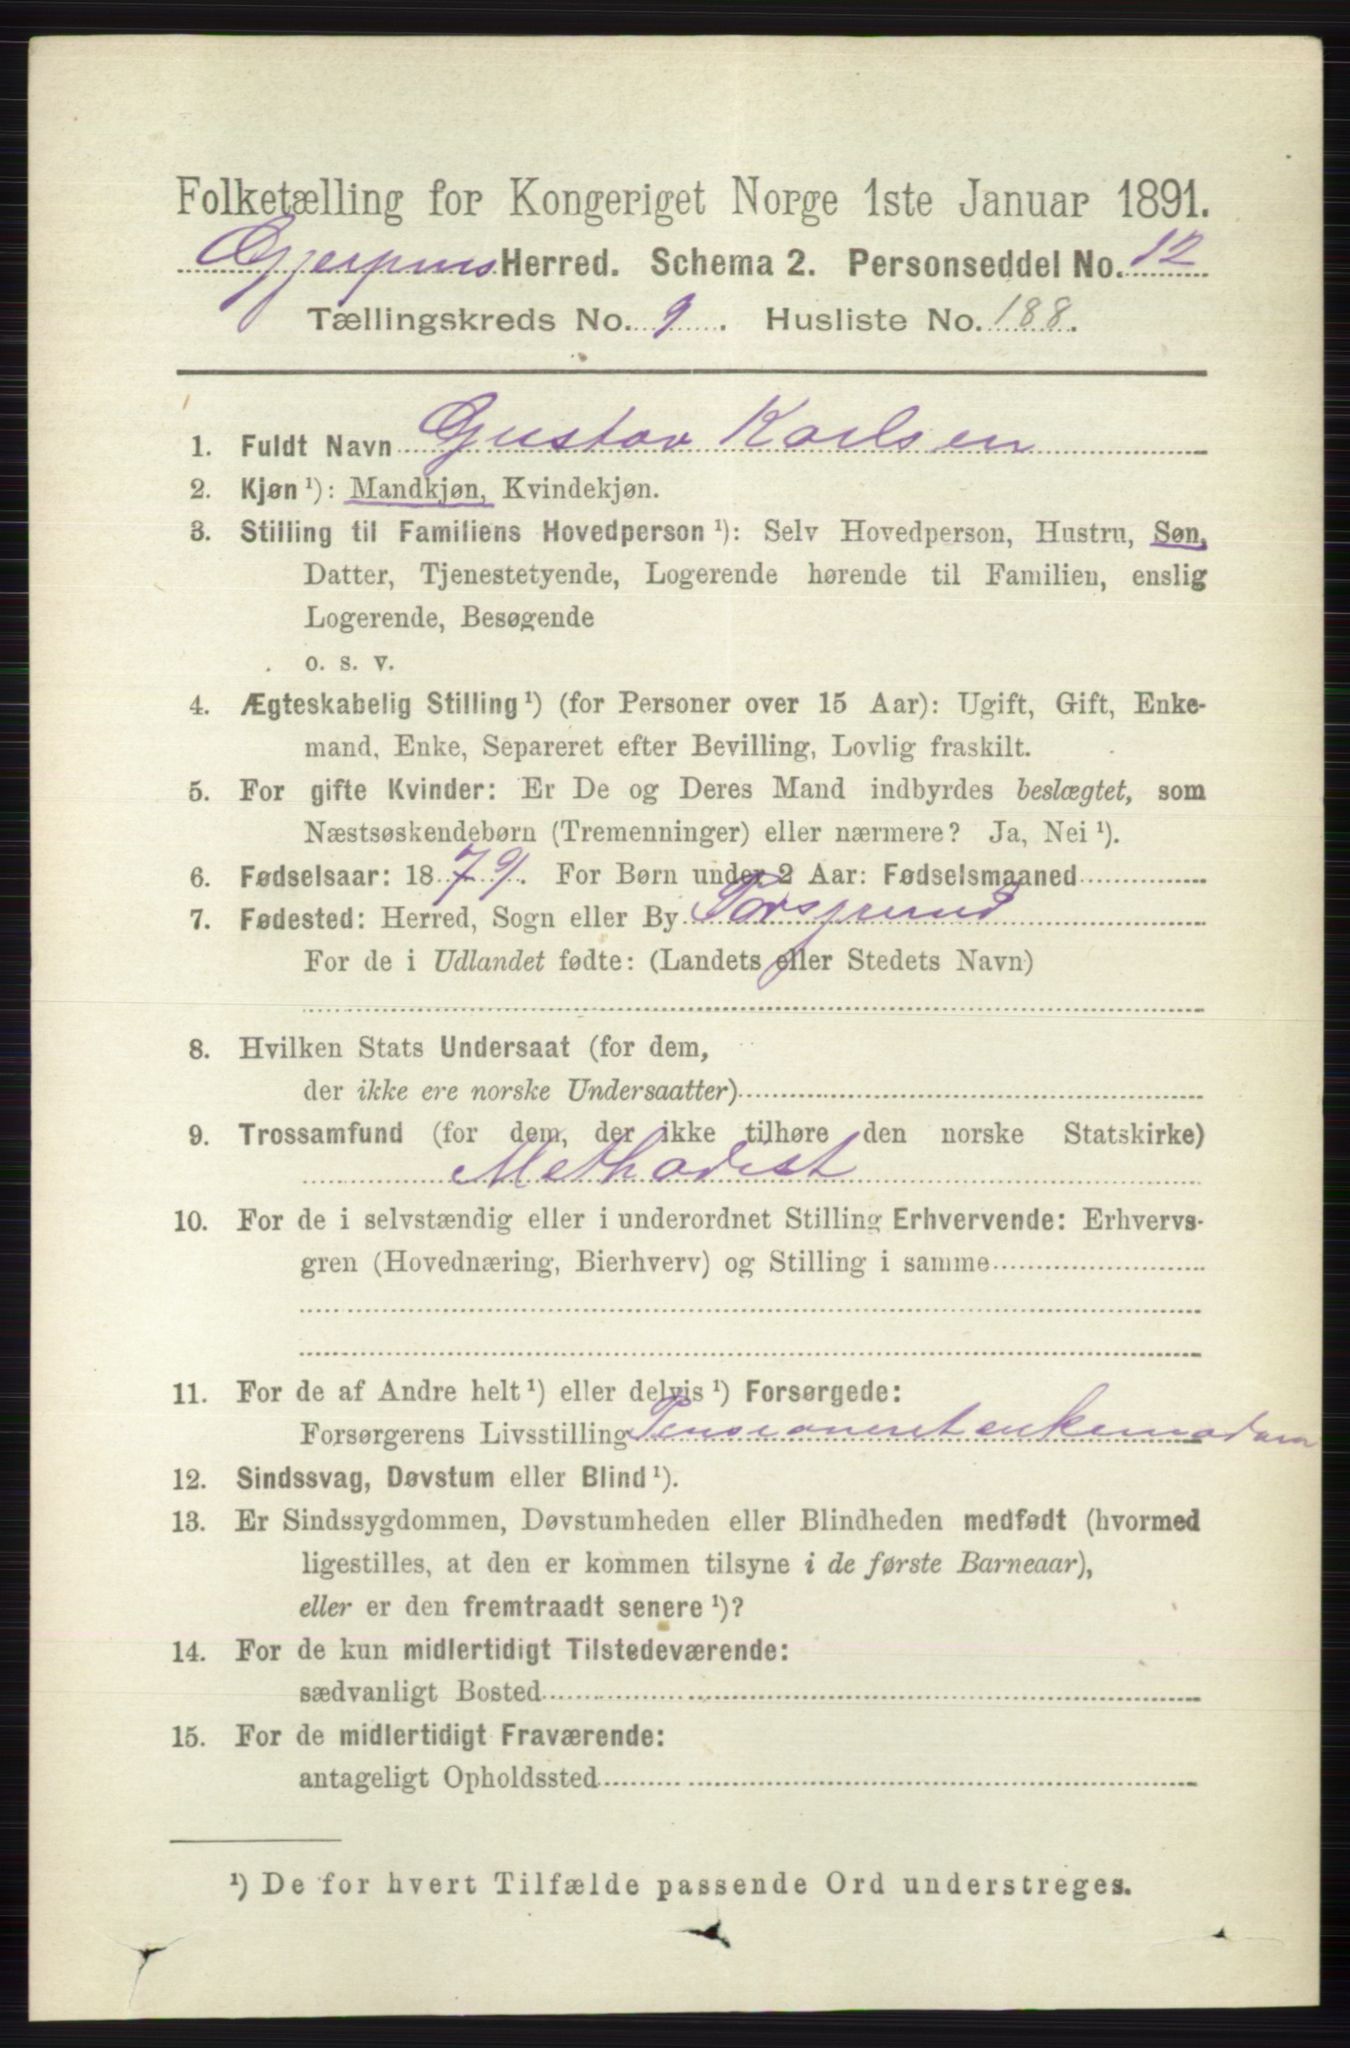 Folketælling for Kongeriget Norge 1ste Januar 1891.
Gjerpens Herred. Schema 2. Personseddel No. 12
Tællingskreds No. 9. Husliste No. 188.
1. Fuldt Navn Gustav Karlsen
2. Kjøn ¹): Mandkjøn, Kvindekjøn.
3. Stilling til Familiens Hovedperson ¹): Selv Hovedperson, Hustru, Søn,
Datter, Tjenestetyende, Logerende hørende til Familien, enslig
Logerende, Besøgende
o. s. v.
4. Ægteskabelig Stilling ¹) (for Personer over 15 Aar): Ugift, Gift, Enke-
mand, Enke, Separeret efter Bevilling, Lovlig fraskilt.
5. For gifte Kvinder: Er De og Deres Mand indbyrdes beslægtet, som
Næstsøskendebørn (Tremenninger) eller nærmere? Ja, Nei ¹).
6. Fødselsaar: 1879. For Børn under 2 Aar: Fødselsmaaned
7. Fødested: Herred, Sogn eller By Porsgrund
For de i Udlandet fødte: (Landets eller Stedets Navn)
8. Hvilken Stats Undersaat (for dem,
der ikke ere norske Undersaatter)
9. Trossamfund (for dem, der ikke tilhøre den norske Statskirke)
Methodist
10. For de i selvstændig eller i underordnet Stilling Erhvervende: Erhvervs-
gren (Hovednæring, Bierhverv) og Stilling i samme
11. For de af Andre helt ¹) eller delvis ¹) Forsørgede:
Forsørgerens Livsstilling Pensioneret enkemadam
12. Sindssvag, Døvstum eller Blind ¹).
13. Er Sindssygdommen, Døvstumheden eller Blindheden medfødt (hvormed
ligestilles, at den er kommen tilsyne i de første Barneaar),
eller er den fremtraadt senere ¹)?
14. For de kun midlertidigt Tilstedeværende:
sædvanligt Bosted
15. For de midlertidigt Fraværende:
antageligt Opholdssted
¹) De for hvert Tilfælde passende Ord understreges.